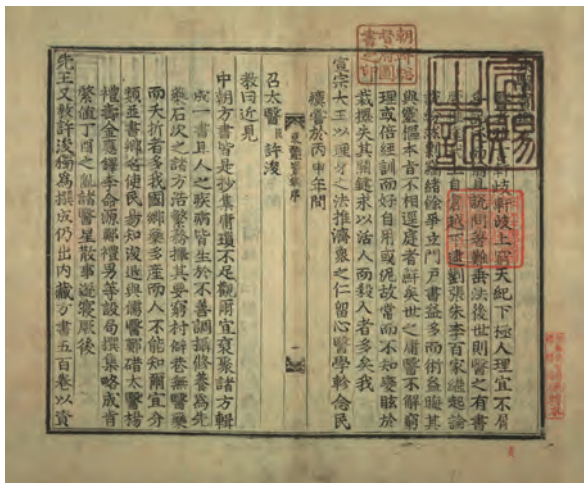 朝鮮總督府圖書之印
軒岐軒岐上窮天紀下極人理宜不屑
說問著難垂法後世則醫之有書
上自倉越下逮劉張朱李百家繼起論
剽竊緖餘爭立門戶書益多而術益晦其
與靈樞本旨不相逕庭者鮮矣世之庸醫不解窮
理或倍經訓而好自用或泥故常而不知變眩於
裁擇失其關鍵求以活人而殺人者多矣我
宣宗大王以理身之法推濟衆之仁留心醫學軫念民
瘼嘗於丙申年間
東醫寶鑑序
一
召太醫臣許浚
敎曰近見
中朝方書皆是抄集庸瑣不足觀爾宜裒聚諸方輯
成一書且人之疾病皆生於不善調攝修養爲先
藥石次之諸方浩繁務擇其要窮村僻巷無醫藥
而夭折者多我國鄕藥多產而人不能知爾宜分
類並書鄕名使民易知浚退與儒醫鄭碏太醫楊
禮壽金應鐸李命源鄭禮男等設局撰集略成肯
綮値丁酉之亂諸醫星散事遂寢厥後
先王又敎許浚獨爲撰成仍出內藏方書五百卷以資